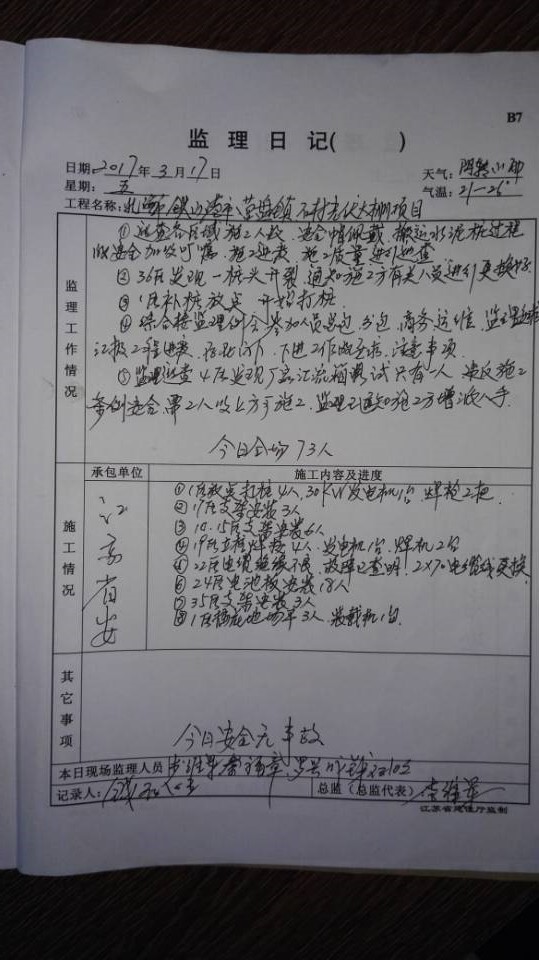 B7
监理日记( )
日期:2017年3月17日 天气:阴转小雨
星期:五 气温:21-26°
工程名称: 石村光伏大棚项目
监理工作情况
①巡查各区域施工人数,安全帽佩戴,搬运水泥桩过程
施工进度,施工质量进行巡查
②36区发现一桩头开裂,通知施工方有关人员进行更换
③1区补桩放点 开始打桩
④ 监理例会 参加人员总包、分包、商务、运维、监理
汇报工程进展, 下进工作 注意事项
⑤监理巡查4区发现厂家汇流箱调试只有一人 违反施工
条例安全,需2人以上方可施工,监理已通知施工方增派人手.
今日全场73人
承包单位 施工内容及进度
施工情况
江苏省安
①1区放点打桩4人,30KW发电机1台 焊枪2把.
②17区支架安装3人
③14.15区支架安装6人
④19区立柱焊接4人.发电机1台.焊机2台
⑤22区电缆绝缘不良,故障已查明,2×70电缆线更换
⑥24区电池板安装18人
⑦35区支架安装3人
⑧1区 场平3人,装载机1台.
其它事项
今日安全无事故
本日现场监理人员
记录人: 总监(总监代表) 李维军
江苏省建设厅监制